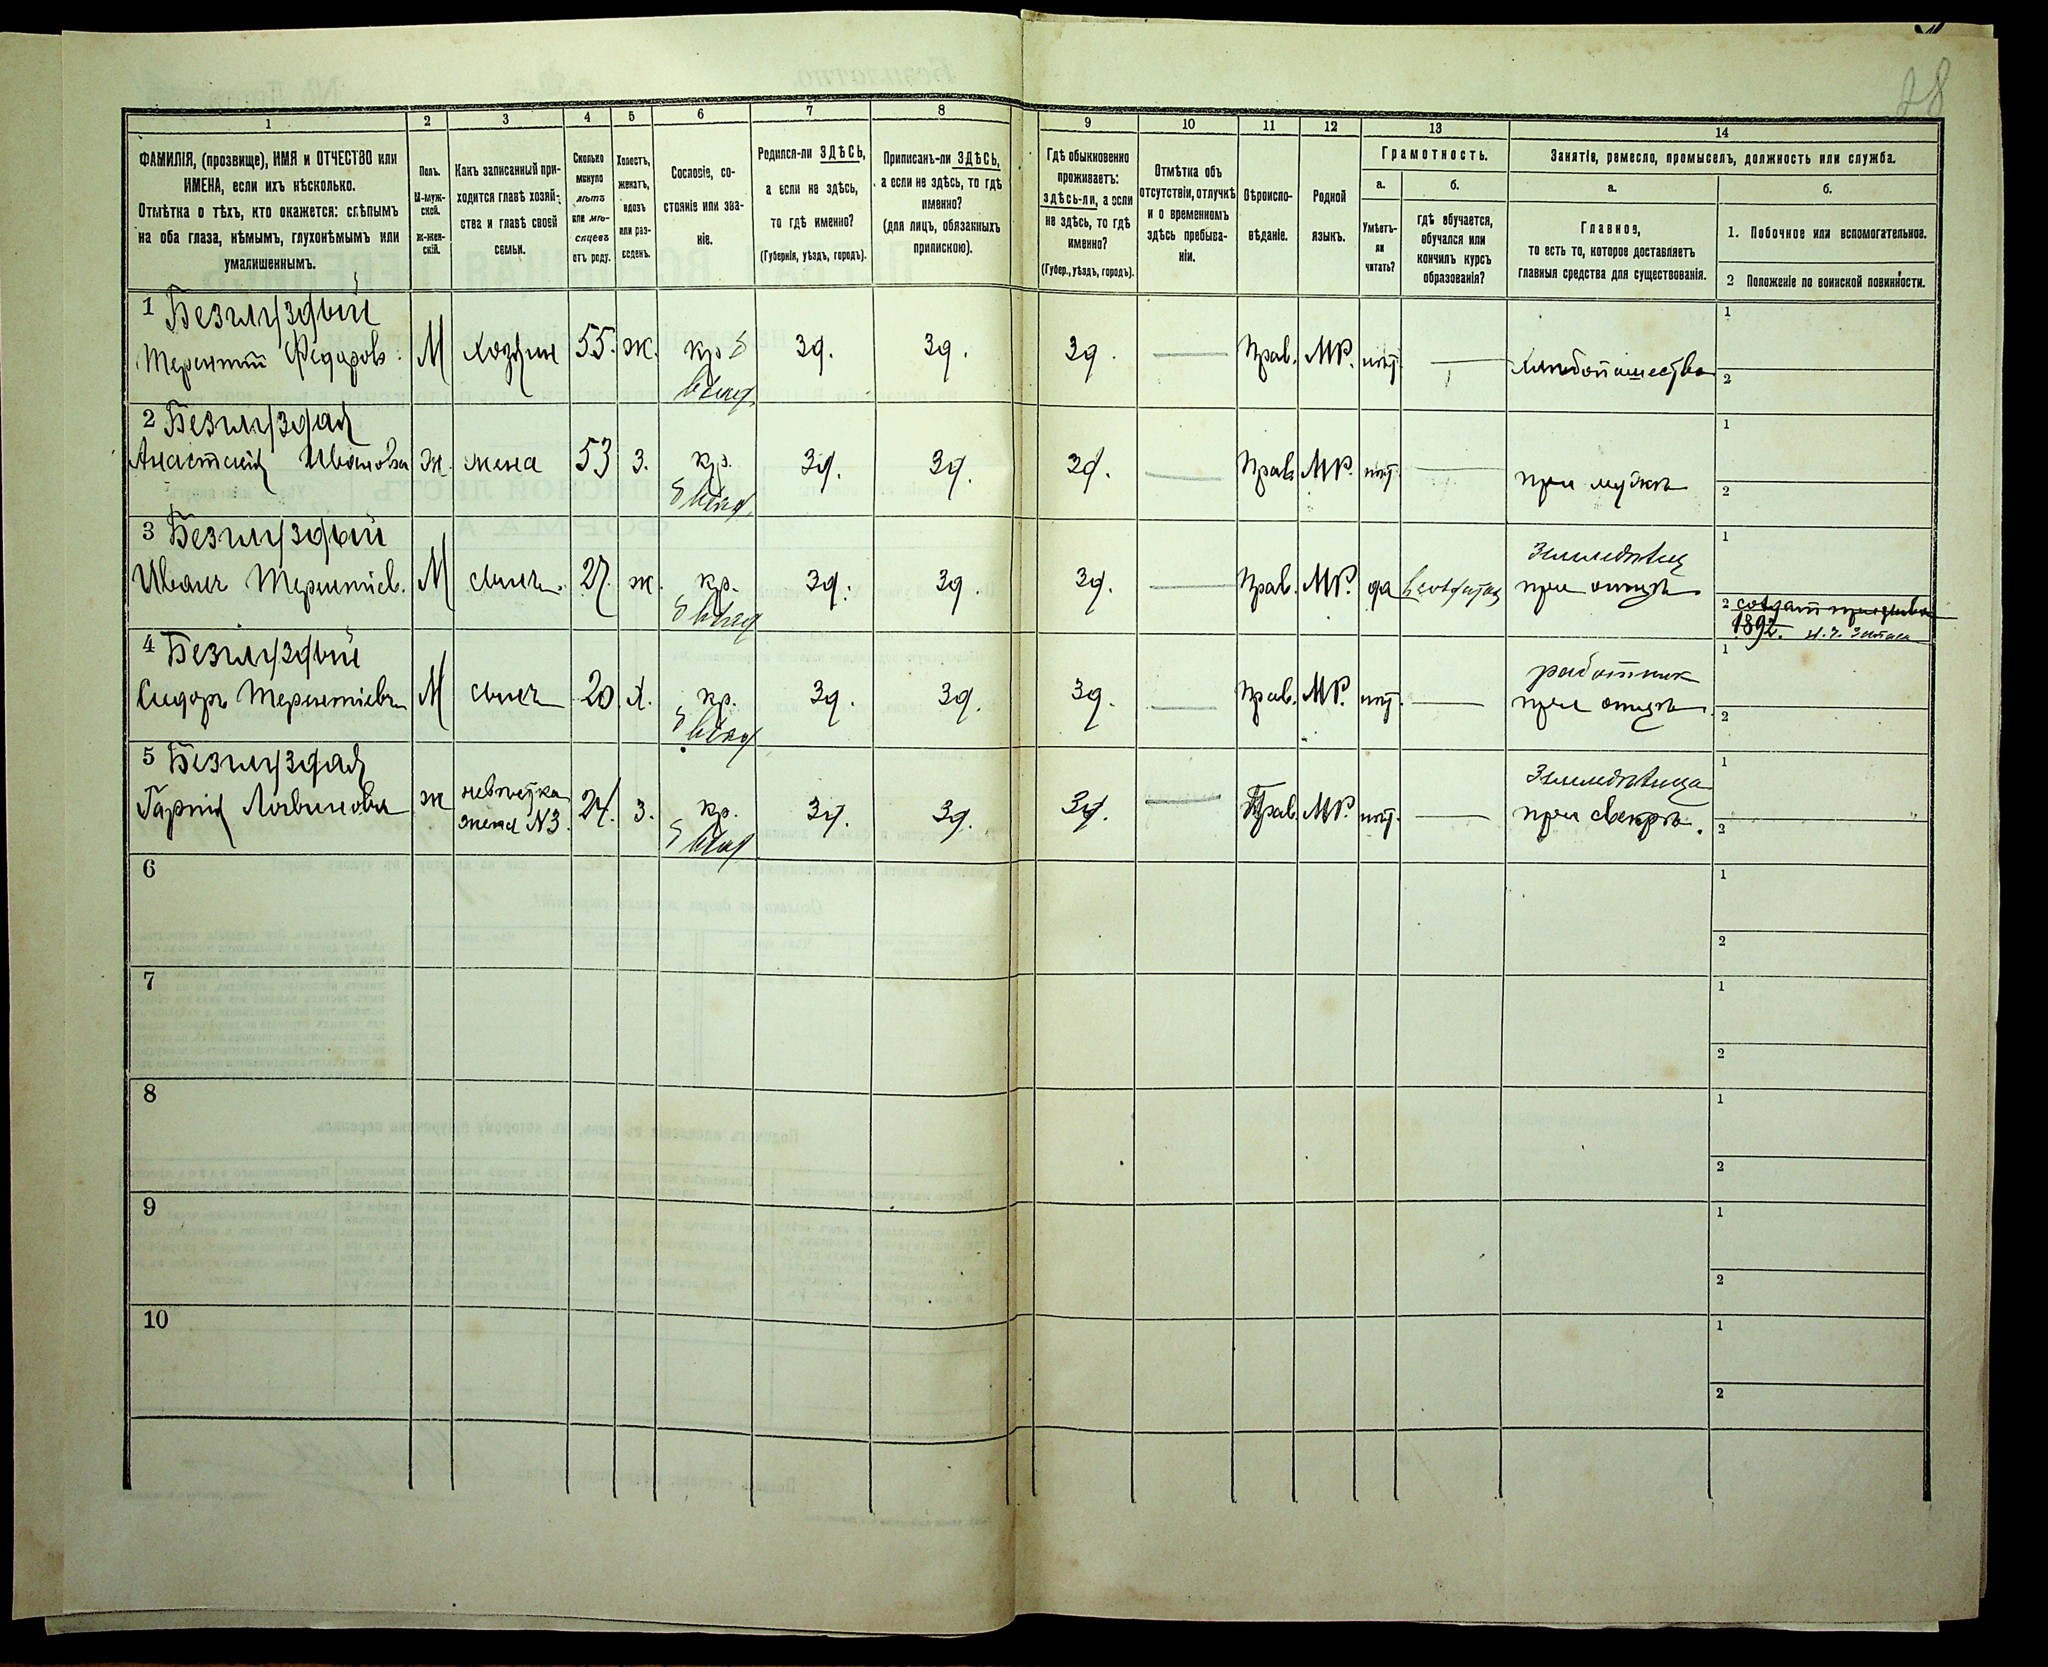 28
1 2 3 4 5 6 7 8 9 10 11 12 13 14
ФАМИЛІЯ, (прозвище), ИМЯ и ОТЧЕСТВО или
ИМЕНА, если ихъ нѣсколько.
Отмѣтка о тѣхъ, кто окажется: слѣпымъ
на оба глаза, нѣмымъ, глухонѣмымъ или
умалишеннымъ.
Полъ.
М-муж-
ской.
Ж-жен-
скій.
Какъ записанный при-
ходится главѣ хозяй-
ства и главѣ своей
семьи.
Сколько
минуло
лѣтъ
или мѣ-
сяцевъ
отъ роду.
Холостъ,
женатъ,
вдовъ
или раз-
веденъ.
Сословіе, со-
стояніе или зва-
ніе.
Родился-ли ЗДѢСЬ,
а если не здѣсь,
то гдѣ именно?
(Губернія, уѣздъ, городъ).
Приписанъ-ли ЗДѢСЬ,
а если не здѣсь, то гдѣ
именно?
(для лицъ, обязанныхъ
припискою).
Гдѣ обыкновенно
проживаетъ:
здѣсь-ли, а если
не здѣсь, то гдѣ
именно?
(Губер., уѣздъ, городъ).
Отмѣтка объ
отсутствіи, отлучкѣ
и о временномъ
здѣсь пребыва-
ніи.
Вѣроиспо-
вѣданіе.
Родной
языкъ.
Грамотность.
а.
Умѣетъ-
ли
читать?
б.
гдѣ обучается,
обучался или
кончилъ курсъ
образованія?
Занятіе, ремесло, промыселъ, должность или служба.
а.
Главное,
то есть то, которое доставляетъ
главныя средства для существованія.
б.
1. Побочное или вспомогательное.
2 Положеніе по воинской повинности.
1 Безглуздый
Терентий Федоров.
М Хозяин 55. ж. кр. Зд. Зд. Зд. — Прав. МР. нет. — хлебопашество
1
2
2 Безглуздая
Анастасия Иванова ж. жена 53 з. кр. Зд. Зд. Зд. — Прав. МР. нет. — при муже
1
2
3 Безглуздый
Иван Терентиев. М сын 27. ж. кр. Зд. Зд. Зд. — Прав. МР. да
при отце
1
2
1892.
4 Безглуздый
Сидоръ Терентиевъ М сын 20. х. кр. Зд. Зд. Зд. — Прав. МР. нет. — работник
при отце
1
2
5 Безглуздая
ж невестка
жена №3. 24. з. кр. Зд. Зд. Зд. — Прав. МР. нет. —
при свекре.
1
2
6
1
2
7
1
2
8
1
2
9
1
2
10
1
2